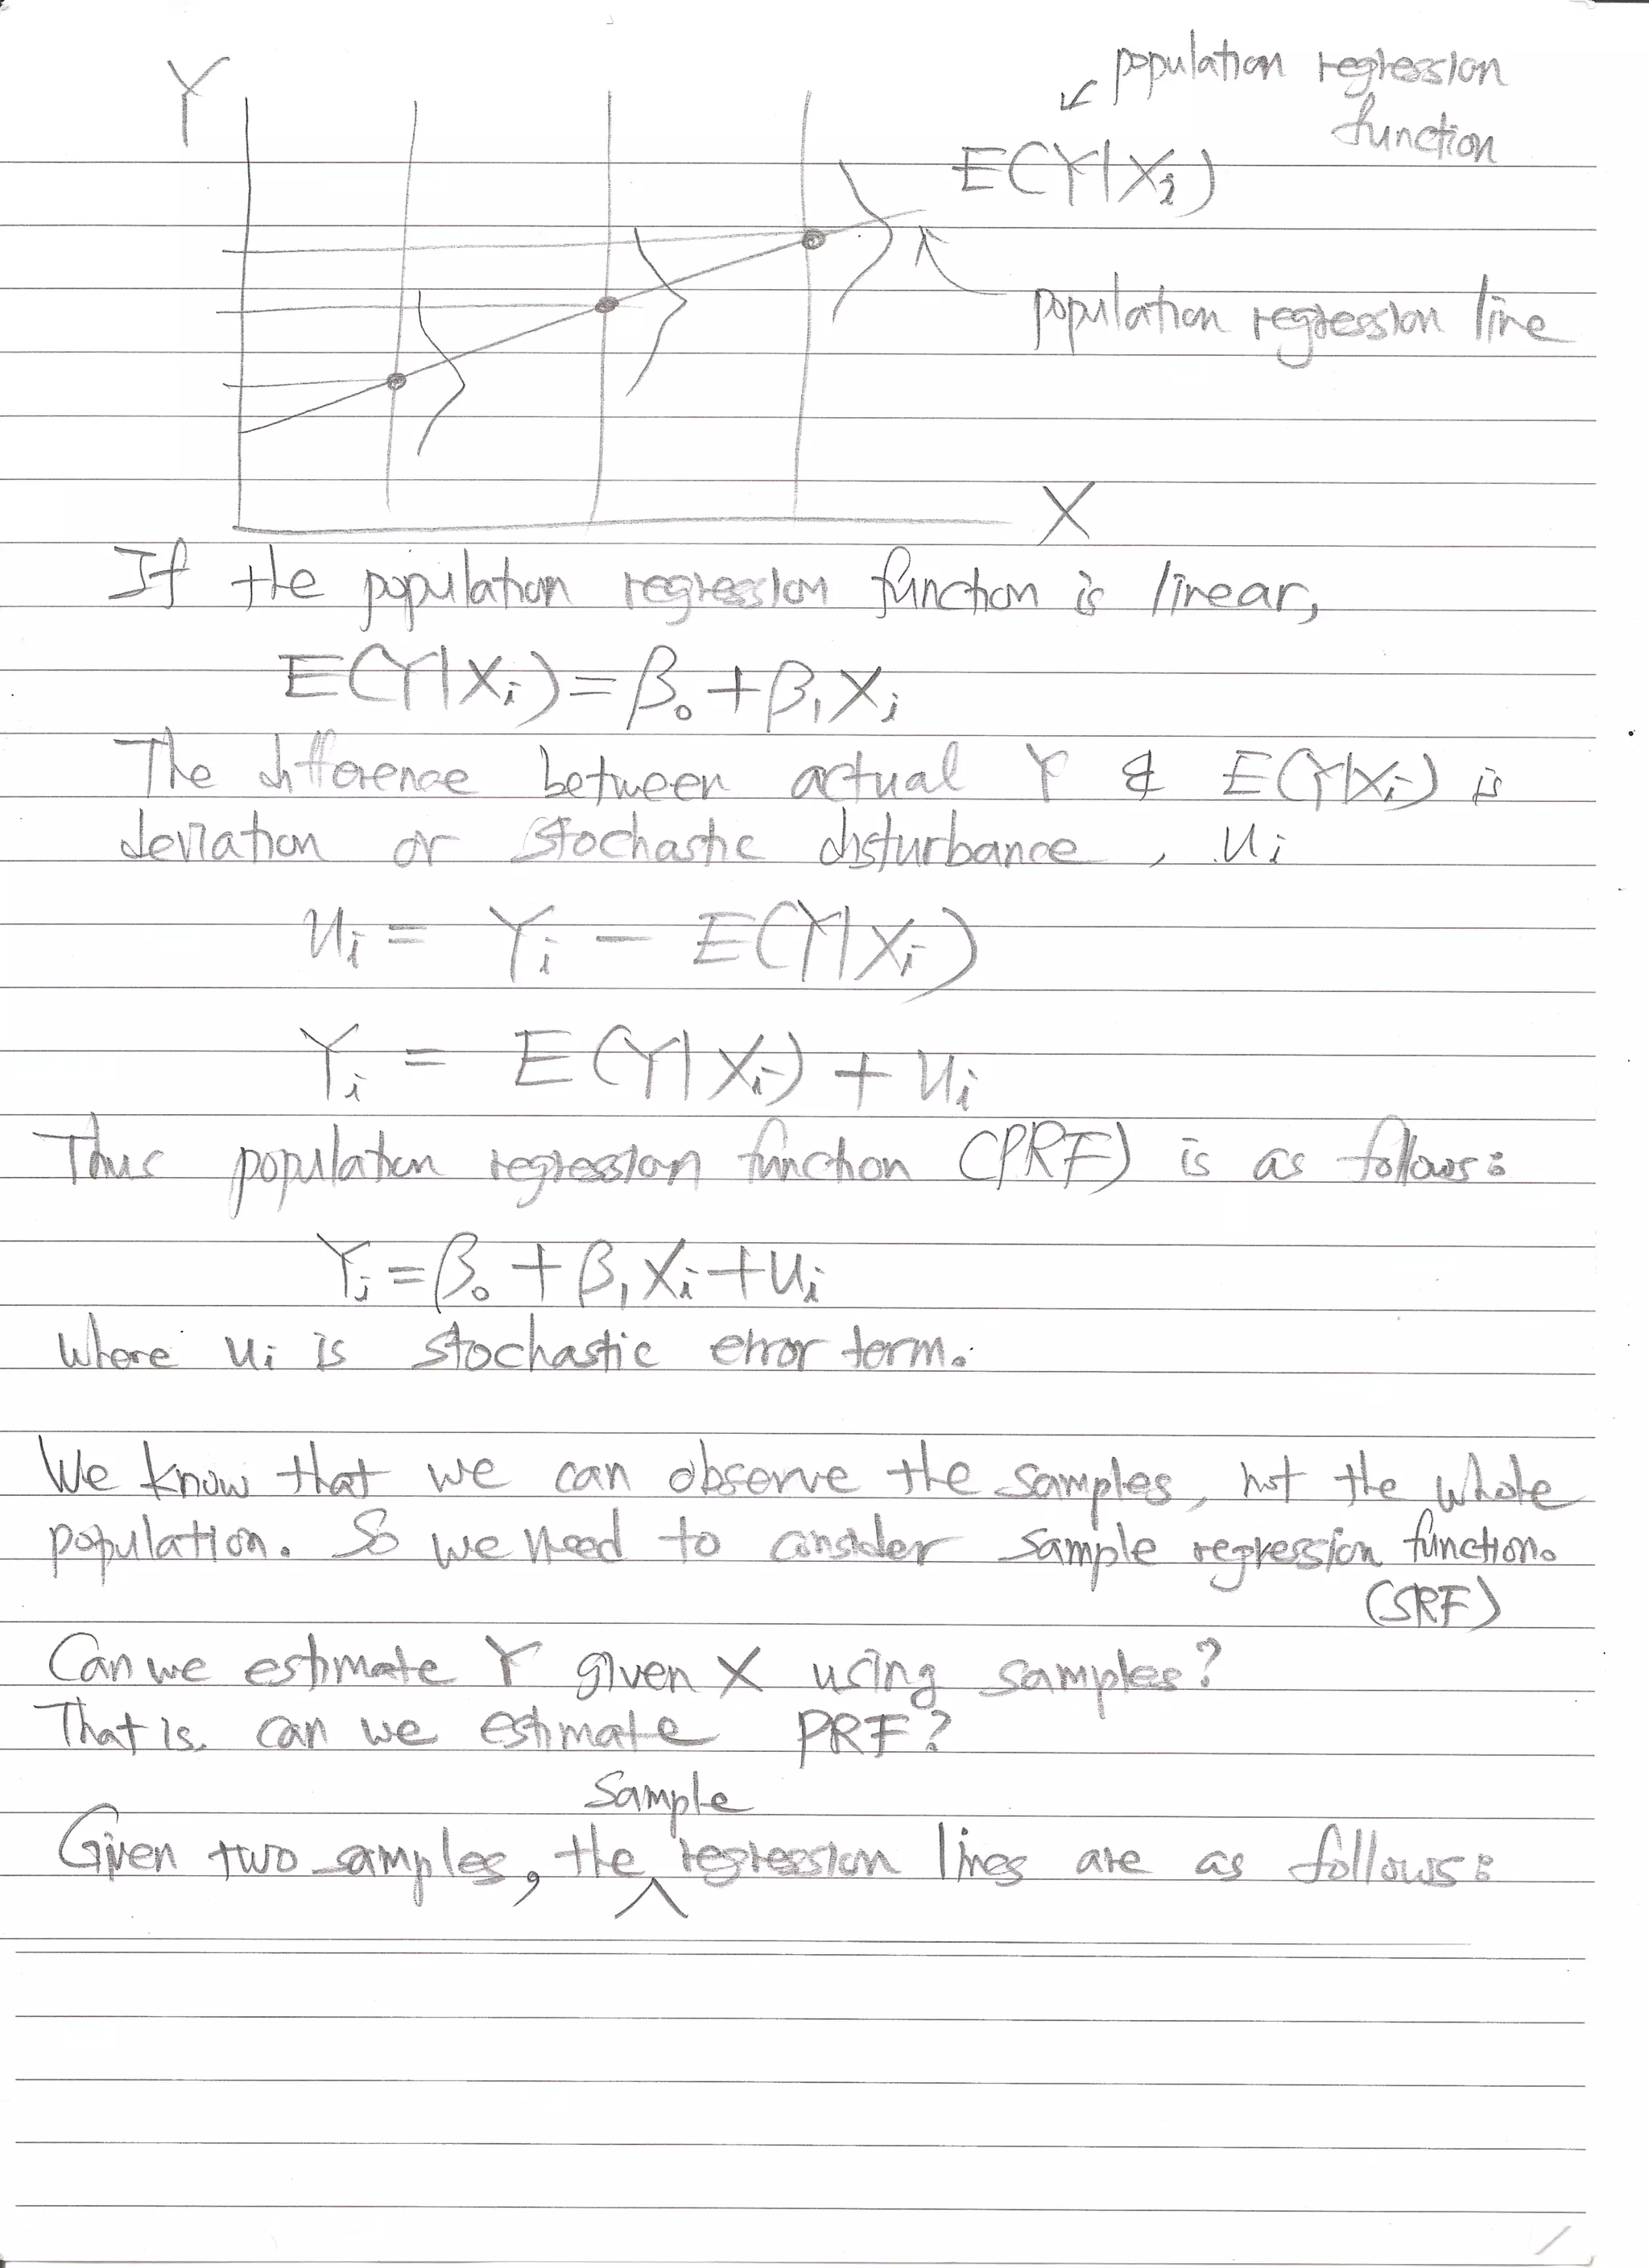 Y
population regression
function
E(Y|Xi)
population regression line
X
If the population regression function is linear,
E(Y|Xi)=β0+β1Xi
The difference between actual Y & E(Y|Xi) is
deviation or stochastic disturbance, ui
ui = Yi - E(Y|Xi)
Yi = E(Y|Xi) + ui
Thus population regression function (PRF) is as follows:
Yi=β0+β1Xi+ui
where ui is stochastic error term.
We know that we can observe the samples, not the whole
population. So we need to consider sample regression function.
(SRF)
Can we estimate Y given X using samples?
That is, can we estimate PRF?
Sample
Given two samples, the regression lines are as follows: